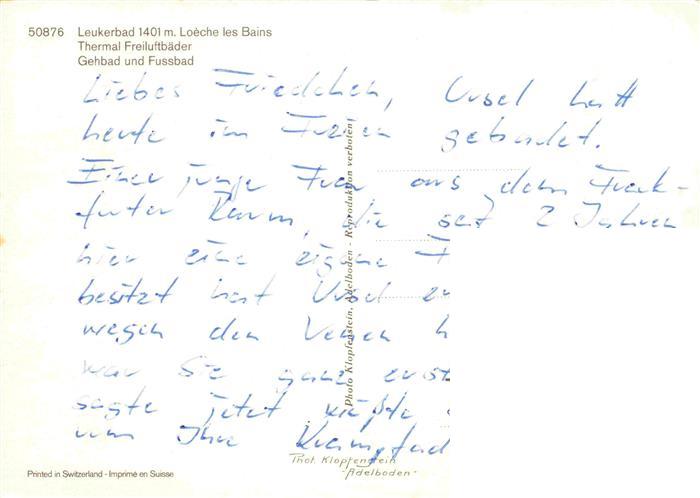 50876 Leukerbad 1401 m. Loèche les Bains
Thermal Freiluftbäder
Gehbad und Fussbad
Liebes Friedchen, Ursel hat
heute im Freien gebadet.
Eine junge Frau aus dem Frank-
furter Raum, die seit 2 Jahren
hier eine eigene F
besitzt hat Ursel
wegen den Venen h
war Sie ganz
sagte jetzt müßte
um Ihre Krampfad
Photo Klopfenstein, Adelboden - Reproduktion verboten
Phot. Klopfenstein
-Adelboden-
Printed in Switzerland - Imprimé en Suisse